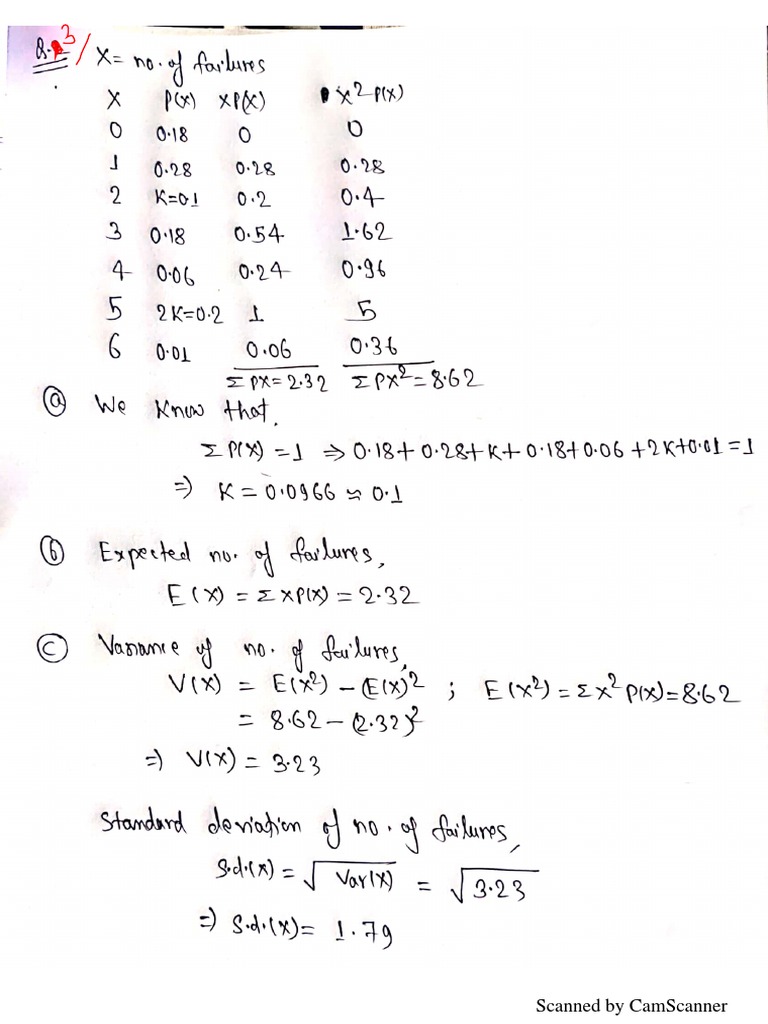 Q.3/ X= no. of failures
X P(X) XP(X) X²P(X)
0 0.18 0 0
1 0.28 0.28 0.28
2 K=0.1 0.2 0.4
3 0.18 0.54 1.62
4 0.06 0.24 0.96
5 2K=0.2 1 5
6 0.01 0.06 0.36
ΣPX=2.32 ΣPX²=8.62
(a) We know that,
ΣP(X)=1 ⇒ 0.18+0.28+K+0.18+0.06+2K+0.01=1
⇒ K=0.0966 ≈ 0.1
(b) Expected no. of failures,
E(X) = ΣXP(X) = 2.32
(c) Variance of no. of failures,
V(X) = E(X²) - (E(X)² ; E(X²) = ΣX²P(X)=8.62
= 8.62 - (2.32)²
⇒ V(X) = 3.23
Standard deviation of no. of failures,
S.d.(X) = √Var(X) = √3.23
⇒ S.d.(X) = 1.79
Scanned by CamScanner